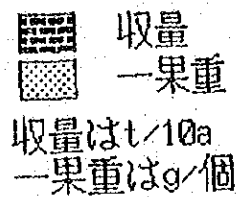 収量
一果重
収量はt/10a
一果重はg/個